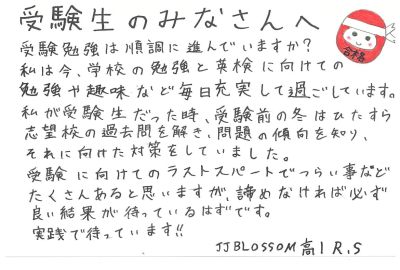 受験生のみなさんへ
合格
受験勉強は順調に進んでいますか?
私は今、学校の勉強と英検に向けての
勉強や趣味など毎日充実して過ごしています。
私が受験生だった時、受験前の冬はひたすら
志望校の過去問を解き、問題の傾向を知り、
それに向けた対策をしていました。
受験に向けてのラストスパートでつらい事など
たくさんあると思いますが、諦めなければ必ず
良い結果が待っているはずです。
実践で待っています!!
JJBLOSSOM高1 R.S